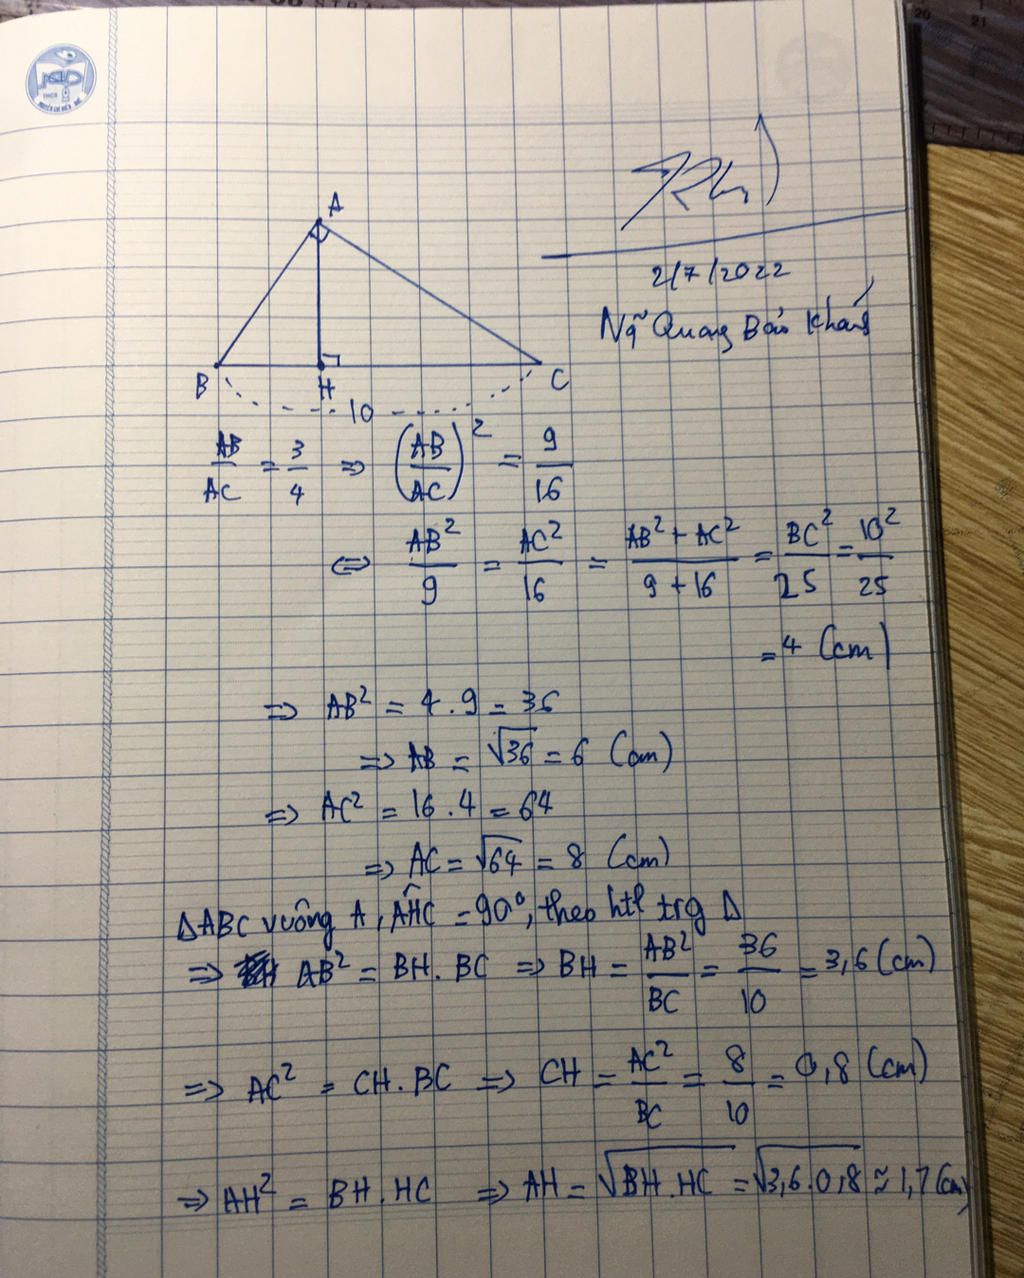 A
2/7/2022
Ng~ Quang Bảo Khánh
B H C
10
AB/AC = 3/4 => (AB/AC)² = 9/16
<=> AB²/9 = AC²/16 = AB² + AC²/9 + 16 = BC²/25 = 10²/25
= 4 (cm)
=> AB² = 4.9 = 36
=> AB = √36 = 6 (cm)
=> AC² = 16.4 = 64
=> AC = √64 = 8 (cm)
ΔABC vuông A, AĤC = 90°, theo htl trg Δ
=> AB² = BH.BC => BH = AB²/BC = 36/10 = 3,6 (cm)
=> AC² = CH.BC => CH = AC²/BC = 8/10 = 0,8 (cm)
=> AH² = BH.HC => AH = √BH.HC = √3,6.0,8 ≈ 1,7 (cm)